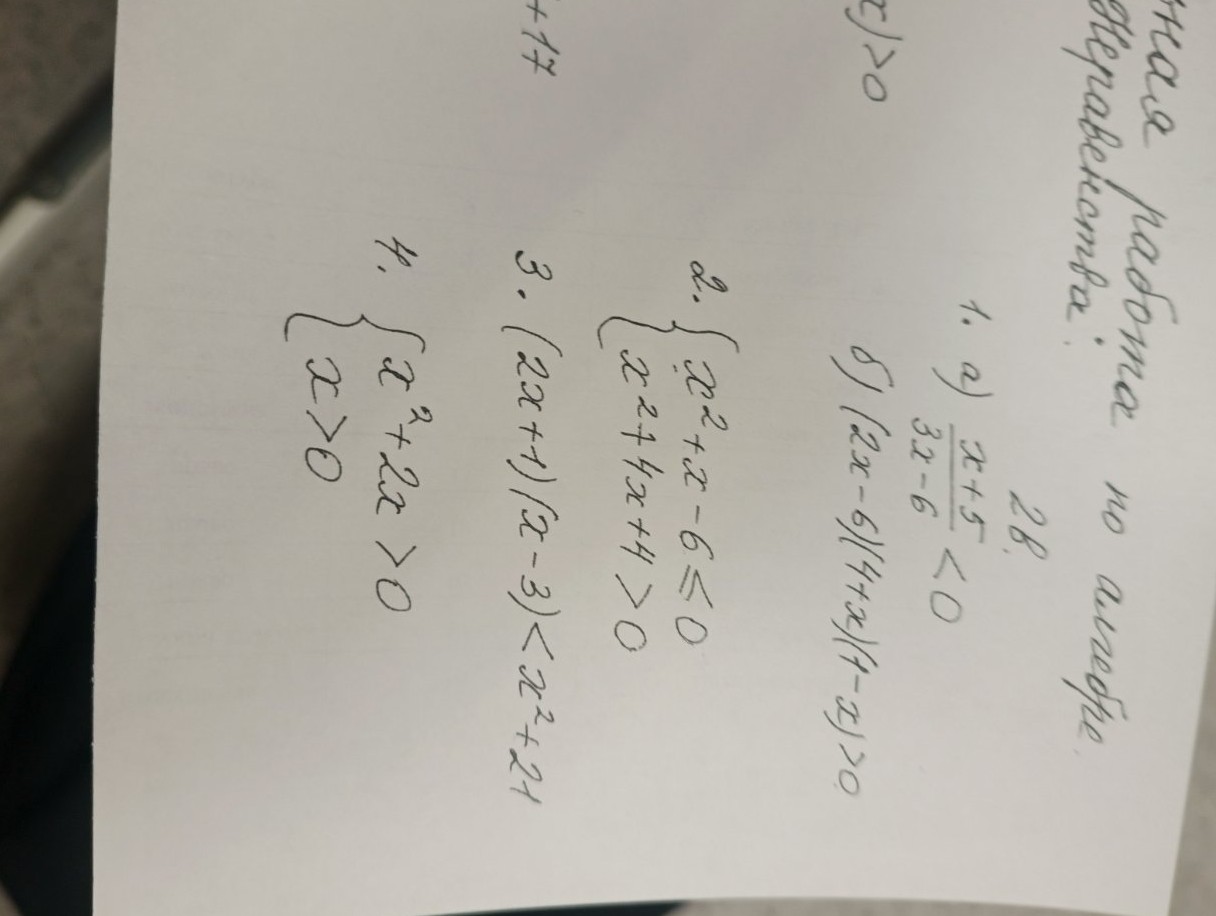 работа по алгебре.
Неравенства.
2в.
x) > 0
+ 17
1. а) x+5 / 3x-6 < 0
б) (2x-6)(4+x)(1-x) > 0
2. { x² + x - 6 ≤ 0
x² + 4x + 4 > 0
3. (2x+1)(x-3) < x² + 21
4. { x² + 2x > 0
x > 0